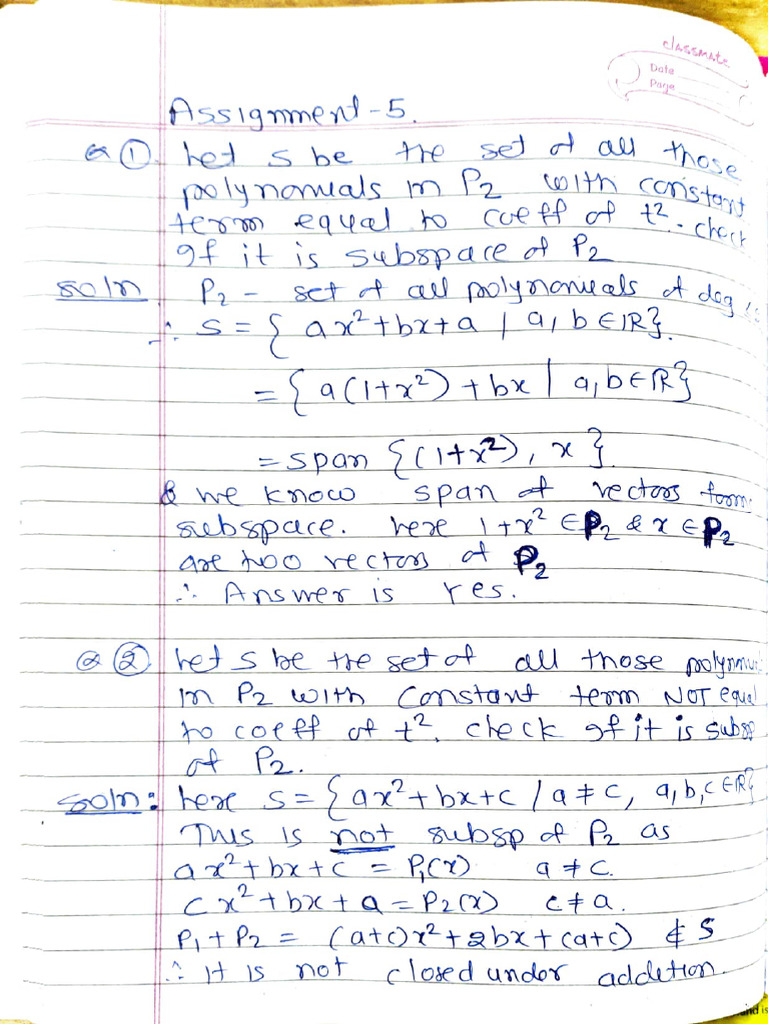 classmate
Date
Page
Assignment-5.
Q ① Let S be the set of all those
polynomials in P₂ with constant
term equal to coeff of t². check
If it is subspace of P₂
Soln P₂ - set of all polynomials of deg
∴ S = { ax²+bx+a | a, b ∈ IR}.
= { a(1+x²) + bx | a, b ∈ IR}
= span {(1+x²), x }
& we know span of vectors form
subspace. here 1+x² ∈ P₂ & x ∈ P₂
are two vectors of P₂
∴ Answer is Yes.
Q ② Let S be the set of all those polynomi
in P₂ with constant term NOT equal
to coeff of t². check If it is subsp
of P₂.
Soln: here S = { ax²+bx+c / a ≠ c, a, b, c ∈ IR}
This is not subsp of P₂ as
ax²+bx+c = P₁(x) a ≠ c.
cx²+bx+a = P₂(x) c ≠ a.
P₁+P₂ = (a+c)x²+2bx+(a+c) ∉ S
∴ It is not closed under addetion.
nd is